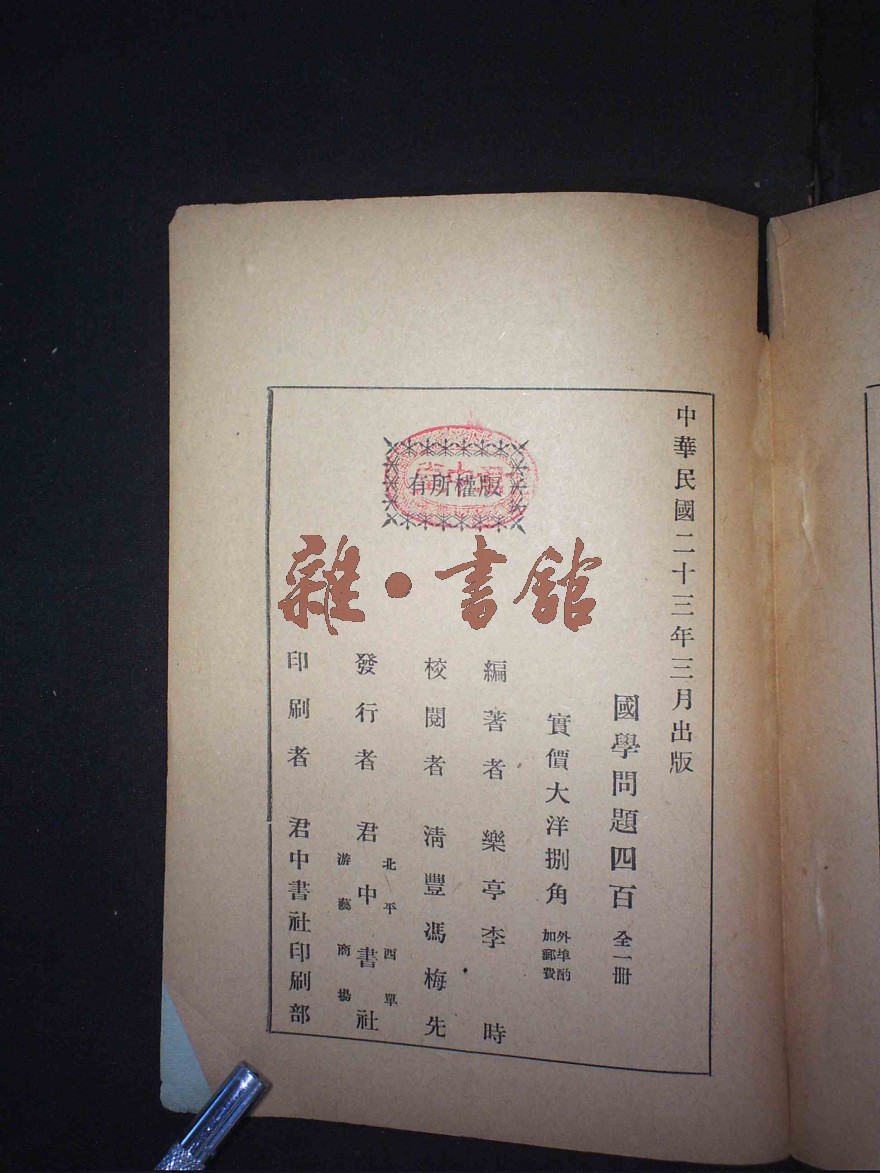 中華民國二十三年三月出版
國學問題四百 全一冊
實價大洋捌角 外埠酌加郵費
編著者 樂亭李時
校閱者 清豐馮梅先
發行者 君中書社 北平西單游藝商場
印刷者 君中書社印刷部
版權所有
雜·書館